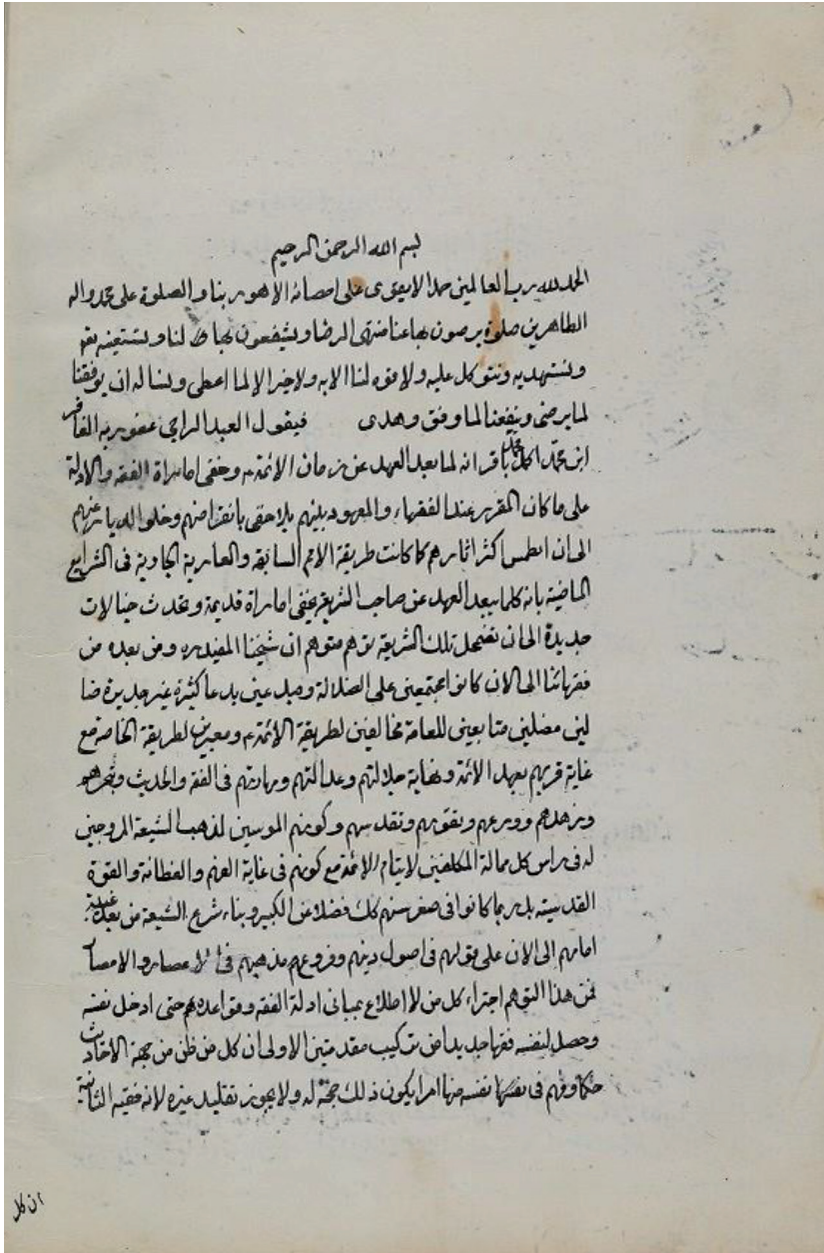 بسم الله الرحمن الرحيم
الحمد لله رب العالمين حمدا لا يقوى على احصائه الا هو ربنا والصلوة على محمد واله
الطاهرين صلوة يرضون بها عنا منتهى الرضا ويشفعون بها لنا ونستعينه
ونستهديه ونتوكل عليه ولا قوة لنا الا به ولا خير الا لما اعطى ونساله ان يوفقنا
لما يرضى وينفعنا لما وفق وهدى فيقول العبد الراجى عفو ربه الغافر
ابن محمد اكمل محمد باقر انه لما بعد العهد عن زمان الائمة وخفى امارات الفقه والادلة
على ما كان المقرر عند الفقهاء والمعهود بينهم بلا خفى بانقراضهم وخلو الديار عنهم
الى ان انطمس اكثر اثارهم كما كانت طريقة الامم السابقة والعادية الجارية فى الشرايع
الماضية بانه كلما يبعد العهد عن صاحب الشريعة يخفى امارات قديمة ويحدث خيالات
جديدة الى ان تضمحل تلك الشريعة توهم متوهم ان شيخنا المفيد ره ومن بعده من
فقهائنا الى الان كانوا مجتمعين على الضلالة ومبدعين بدعا كثيرة غير جديرة ضا
لين مضلين متابعين للعامة مخالفين لطريقة الائمة ومغيرين لطريقة الخاصة مع
غاية قربهم بعهد الائمة ونهاية جلالتهم وعدالتهم ومهارتهم فى الفقه والحديث وتبحرهم
وزهدهم وورعهم وتقويهم وتقدسهم وكونهم الموسسين لمذهب الشيعة المروجين
له فى راس كل مائة المكلفين لايتام الائمة مع كونهم فى غاية الفهم والفطانة والقوة
القدسية بل ربما كانوا فى صغر سنهم كك فضلا عن الكبير وبناء شرع الشيعة من بعد غيبة
امامهم الى الان على قولهم فى اصول دينهم وفروع مذهبهم فى الاعصار والامصار
فمن هذا التوهم اجتراء كل من لا اطلاع بمبانى ادلة الفقه وقواعدهم حتى ادخل نفسه
وحصل لنفسه فقها جديدا من تركيب مقدمتين الاولى ان كل من ظن من جهة الاحاديث
حكما وفهم فى نفسه منها امرا يكون ذلك حجة له ولا يجوز تقليد غيره لانه فقيه الثانية
ان كل